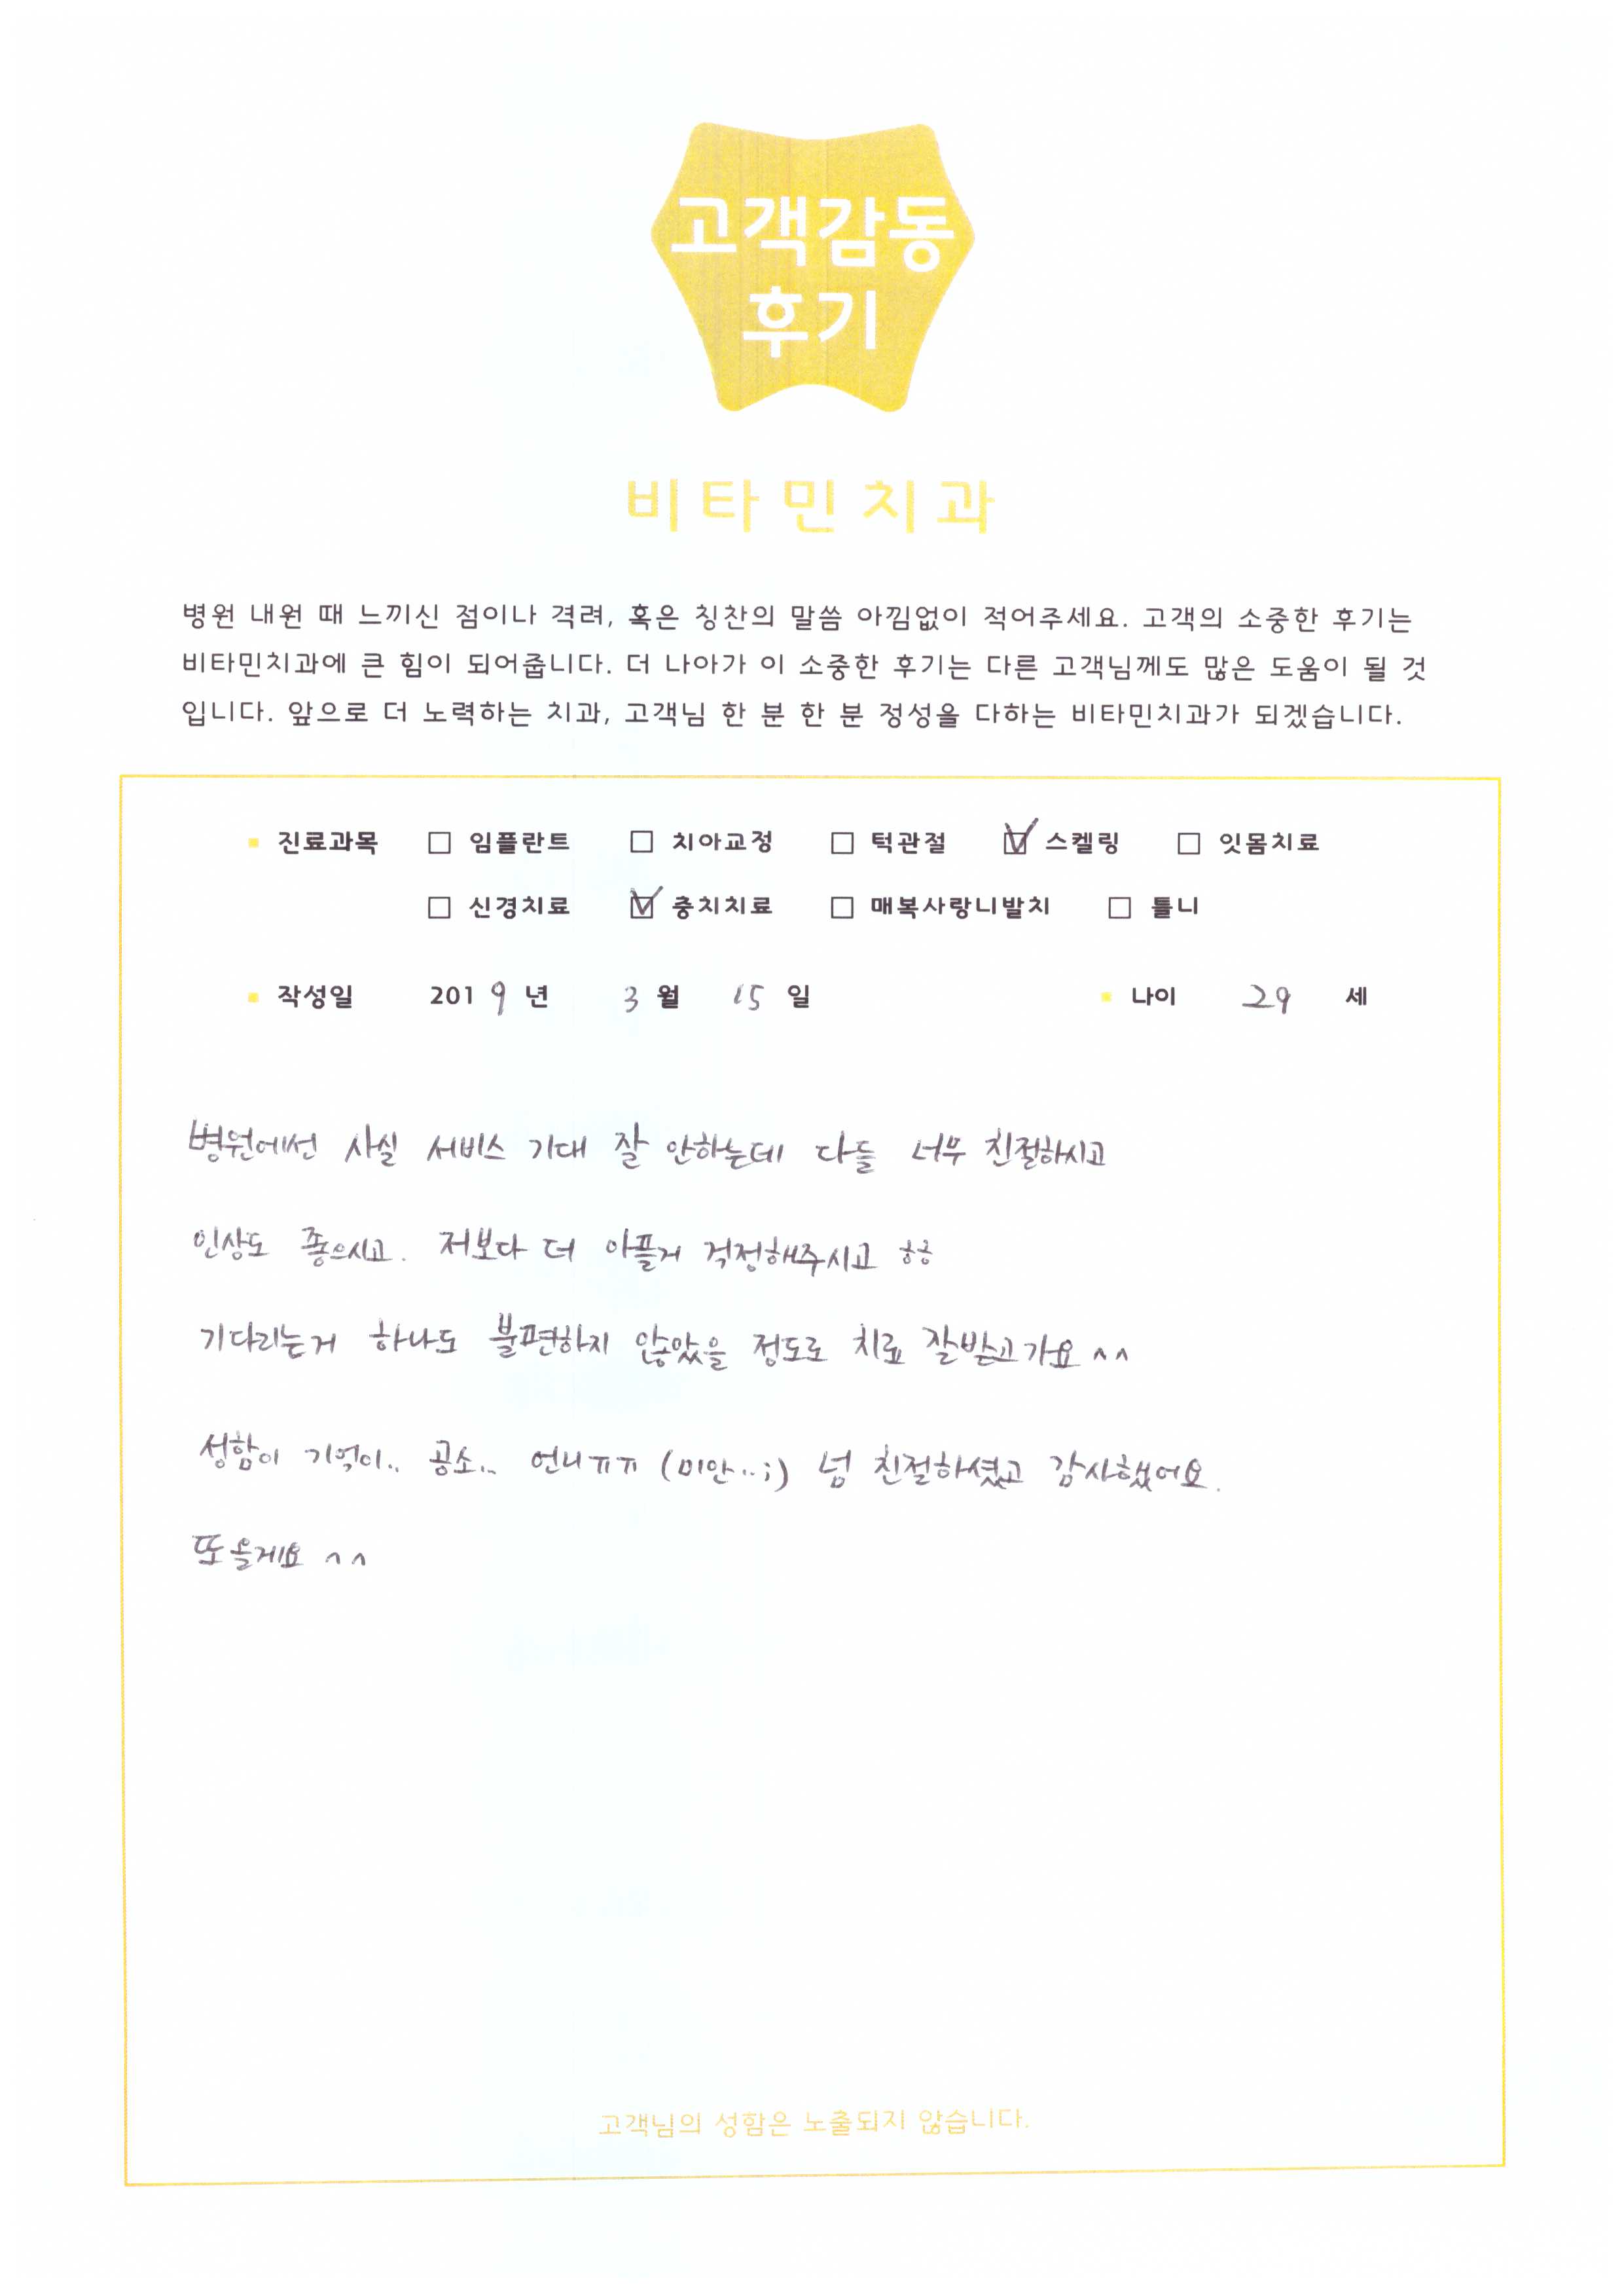 고객감동
후기
비타민치과
병원 내원 때 느끼신 점이나 격려, 혹은 칭찬의 말씀 아낌없이 적어주세요. 고객의 소중한 후기는
비타민치과에 큰 힘이 되어줍니다. 더 나아가 이 소중한 후기는 다른 고객님께도 많은 도움이 될 것
입니다. 앞으로 더 노력하는 치과, 고객님 한 분 한 분 정성을 다하는 비타민치과가 되겠습니다.
진료과목 임플란트 치아교정 턱관절 스켈링 잇몸치료
신경치료 충치치료 매복사랑니발치 틀니
작성일 2019년 3월 15일 나이 29 세
병원에선 사실 서비스 기대 잘 안하는데 다들 너무 친절하시고
인상도 좋으시고. 저보다 더 아플거 걱정해주시고 ㅎㅎ
기다리는거 하나도 불편하지 않았을 정도로 치료 잘받고가요 ^^
성함이 기억이.. 공소.. 언니ㅠㅠ (미안..;) 넘 친절하셨고 감사했어요.
또올게요 ^^
고객님의 성함은 노출되지 않습니다.